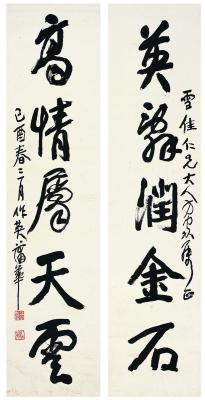 英辭潤金石
雪佳仁兄大人
正
高情屬天雲
己酉春二月作英蒲華